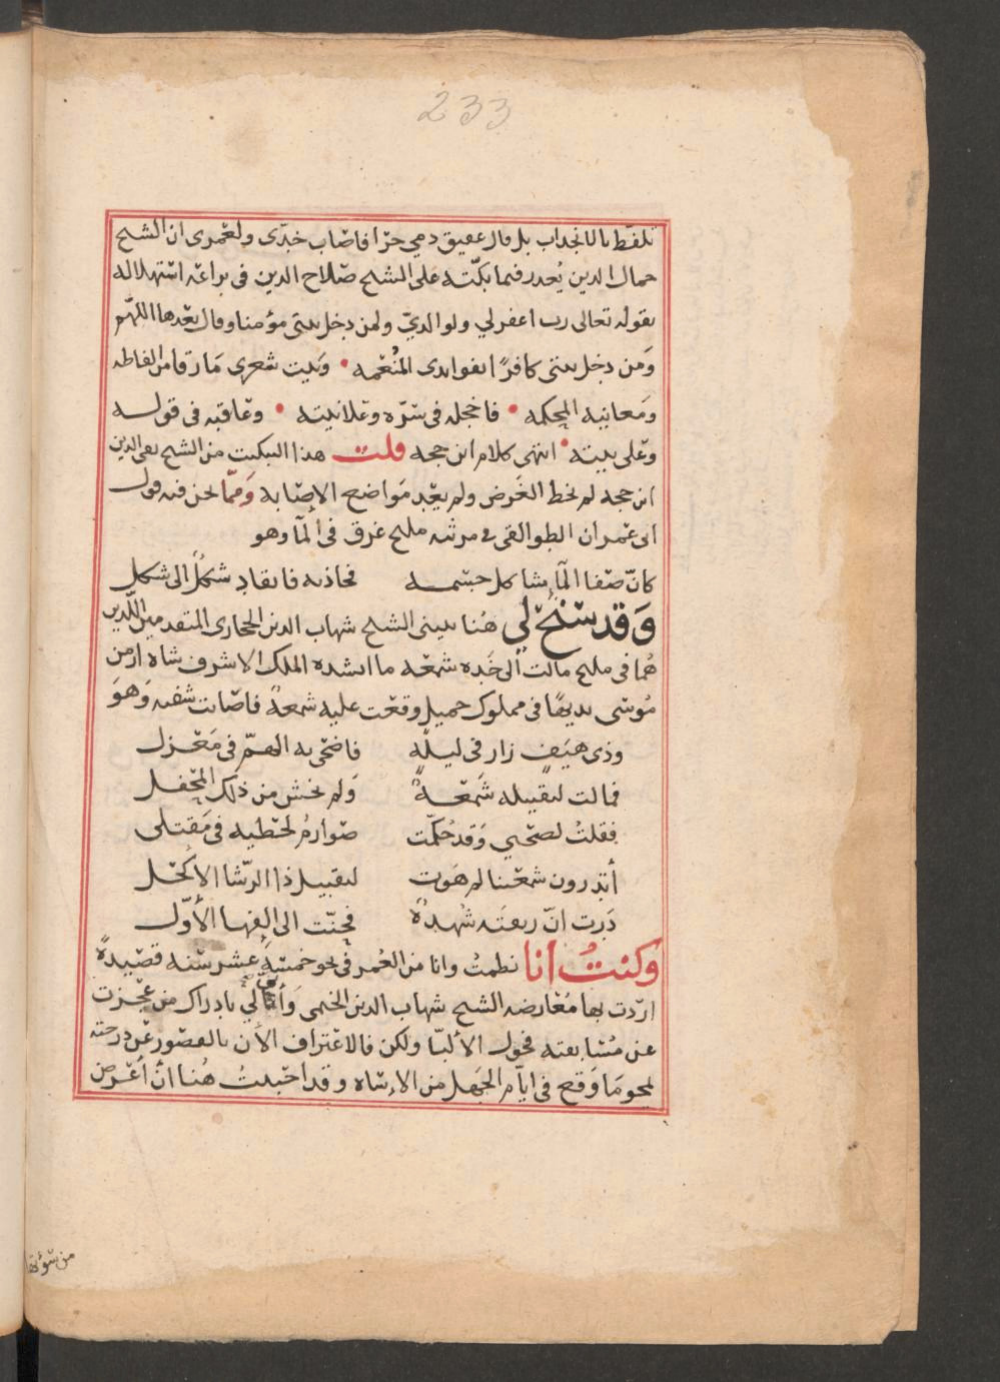 233
تلفظ بالانجداب بل قال عقيق دمي جرا فاضاب خدّى ولعمرى ان الشيخ
جمال الدين يُعذر فيما بكّته على الشيخ صلاح الدين فى براعة استهلاله
بقوله تعالى رب اغفر لي ولوالديّ ولمن دخل بيتى مؤمنا وقال بعدها اللهم
وَمن دخل بيتى كافرًا بفوايدى المُنعمه • وَليت شعرى مَا رقا من الفاظه
ومَعانيه المحكمه • فاخجله فى سرّه وعلانيته • وعاقبه فى قوله
وعلى بيته • انتهى كلام ابن حجه قلت هذا التبكيت من الشيخ تقى الدين
ابن حجه لم يخط الغَرض ولم يعْد مَواضع الإصابة وَممّا نحن فيه قول
ابى عمران الطوالقى فى مرثيه مليح غرق فى المآ وهو
كانّ صفا المآ شاكل جسمه فجاذبه فانقاد شكلٌ الى شكل
وَقد سَنَحَ لي هُنا بيتى الشيخ شهاب الدين الحجارى المتقدمين اللذين
هُما فى مليح مالت الى خَده شمعَه ما انشده الملك الاشرف شاه ارمن
مُوسى بديهًا فى مملوك جميل وقعَت عليه شمعةٌ فاصَابت شفته وَهوَ
وذى هيَفٍ زار فى ليلةٍ فاضحى به الهمّ فى مَعزل
فمالت لتقبيله شَمعَةٌ وَلم تخش من ذلك المحفل
فقلتُ لصحبي وَقد حُكّمت صَوارمُ لحظيه فى مَقتلى
أتدرون شمعَتنا لم هَوت لتقبيل ذا الرشا الاكحل
دَرت انّ ريقتَه شُهدةٌ فحنّت الى الفها الأوّل
وكنتُ انا نظمتُ وانا من العُمر فى نحو خمسَة عشر سَنه قصيدةً
اردت بها مُعارضه الشيخ شهاب الدين الخيمى وَأنّى لي بادراك من عجزت
عن مُتابعته فحول الألبّا ولكن فالاعتراف الآن بالقصور عن درجته
يمحو مَا وَقع فى ايام الجهل من الإساه وقد احببتُ هُنا انْ أعرض